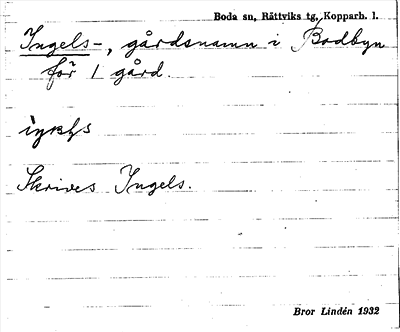 Boda sn, Rättviks tg, Kopparb. l.
Ingels-, gårdsnamn i Bodbyn
för 1 gård.
Skrives Ingels.
Bror Lindén 1932